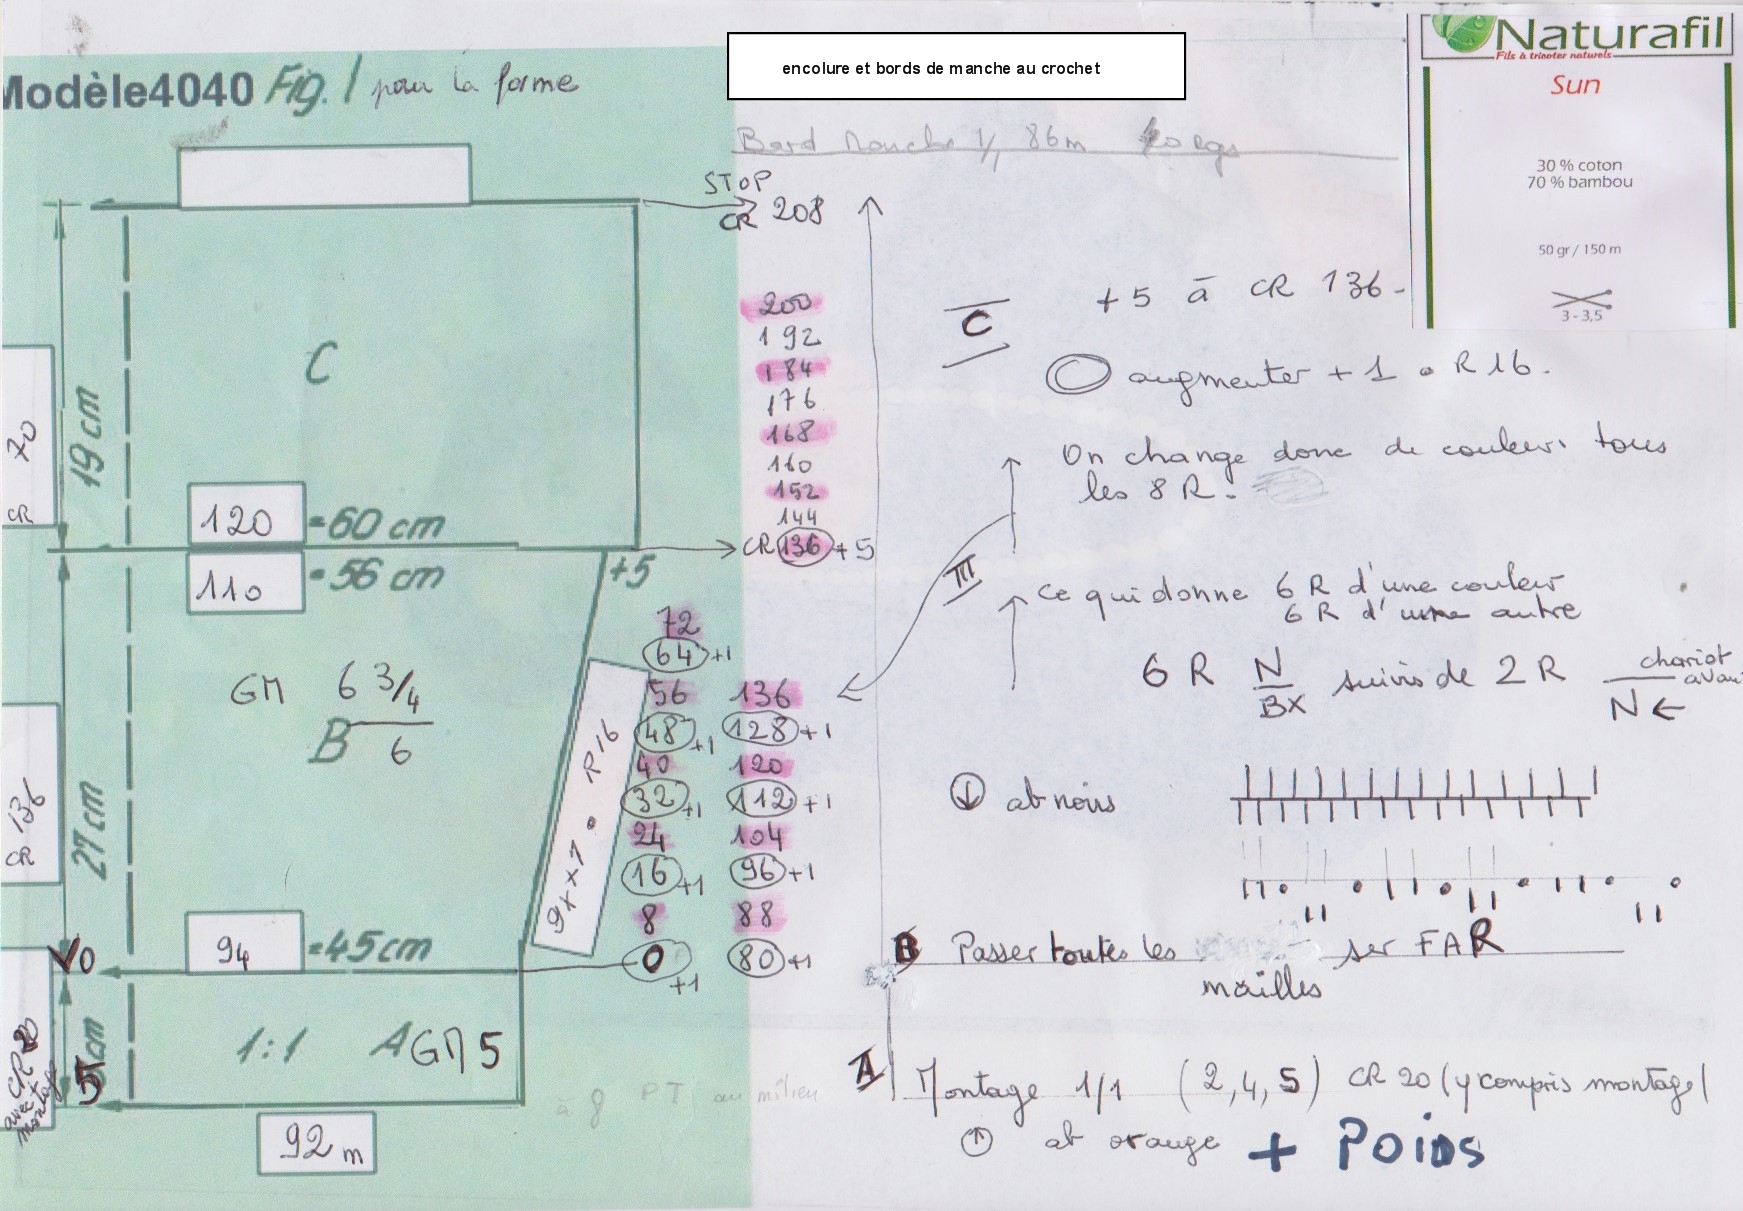 Modèle4040 Fig. 1 pour la forme
encolure et bords de manche au crochet
Naturafil
Fils à tricoter naturels
Sun
30 % coton
70 % bambou
50 gr / 150 m
3 - 3,5
Bord Manche 1/1 86m 40 rgs
STOP
CR 208
C
19 cm
70
CR
120 = 60 cm
110 = 56 cm
+5
200
192
184
176
168
160
152
144
CR 136 + 5
72
64 +1
56
48 +1
40
32 +1
24
16 +1
8
0
+1
136
128 +1
120
112 +1
104
96 +1
88
80 +1
GM 6 3/4
B 6
9 x x 1 • R 16
27 cm
CR 136
94 = 45 cm
VO
1:1 A GM 5
5 cm
CR 20
avec
montage
92 m
à 8 PT au milieu
C
+ 5 à CR 136 -
augmenter + 1 • R 16.
On change donc de couleur tous
les 8 R -
III
Ce qui donne 6 R d'une couleur
6 R d'une autre
6 R N suivis de 2 R chariot avant
BX N ←
↓ ab noirs
B Passer toutes les
mailles
sur FAR
A Montage 1/1 (2,4,5) CR 20 (y compris montage)
↑ ab orange + POIDS